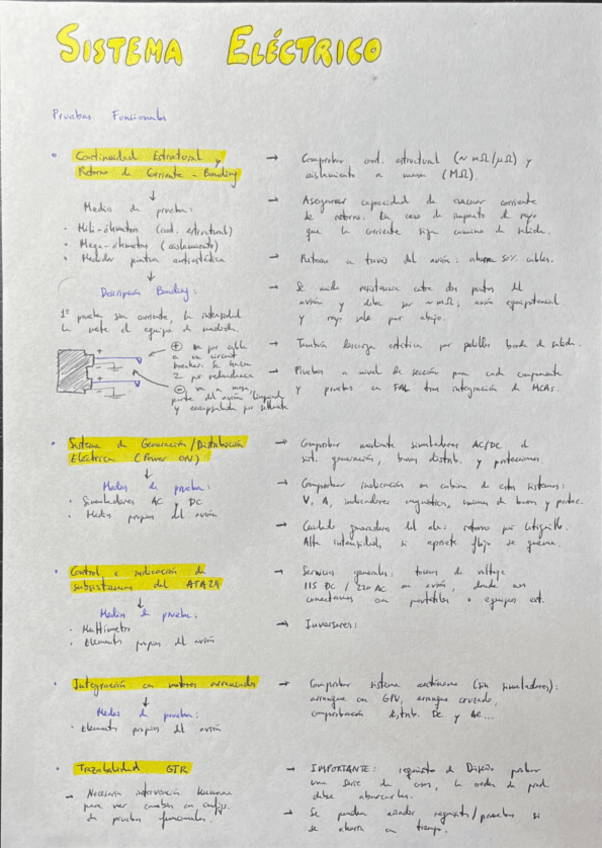 SISTEMA ELÉCTRICO
Pruebas Funcionales
• Continuidad Estructural y
Retorno de Corriente - Bonding
↓
Medios de prueba:
· Mili-óhmetros (cont. estructural)
· Mega-óhmetros (aislamiento)
· Medidor pintura antiestática
↓
Descripción Bonding:
1º prueba sin corriente, la intensidad
la mete el equipo de medida.
⊕ va por cable
a un circuit
breaker. Se hacen
2 por redundancia
⊖ va a masa,
parte del avión limpiada
y encapsulada por sellante
→ Comprobar cont. estructural (~ mΩ/μΩ) y
aislamiento a masa (MΩ).
→ Asegurar capacidad de evacuar corriente
de retorno. En caso de impacto de rayo
que la corriente siga camino de salida.
→ Retorno a través del avión: ahorra 50% cables.
→ Se mide resistencia entre dos puntos del
avión y debe ser ~ mΩ; avión equipotencial
y rayo sale por abajo.
→ También descarga estática por palillos borde de salida.
→ Pruebas a nivel de sección para cada componente
y pruebas en FAL tras integración de MCAs.
• Sistema de Generación/Distribución
Eléctrica (Power ON)
↓
Medios de prueba:
· Simuladores AC / DC
· Medios propios del avión
→ Comprobar mediante simuladores AC/DC el
sist. generación, barras distrib. y protecciones.
→ Comprobar indicación en cabina de estos sistemas:
V, A, indicadores magnéticos, uniones de barras y protec.
→ Cuidado generadores del ala: retorno por
Alta intensidad, si aprieta flojo se quema.
• Control e indicación de
subsistemas del ATA24
↓
Medios de prueba:
· Multímetro
· Elementos propios del avión
→ Servicios generales: tomas de voltaje
115 DC / 220 AC en avión, donde nos
conectamos con portátiles o equipos ext.
→ Inversores:
• Integración con motores arrancados
↓
Medios de prueba:
· Elementos propios del avión
→ Comprobar sistema autónomo (sin simuladores):
arranque con GPU, arranque cruzado,
comprobación distrib. DC y AC...
• Trazabilidad GTR
→ Necesaria intervención humana
para ver cambios en config.
de pruebas funcionales.
→ IMPORTANTE: requisito de Diseño probar
una serie de cosas, la orden de prod.
debe abarcarlas.
→ Se pueden añadir requisitos/pruebas si
se ahorra en tiempo.